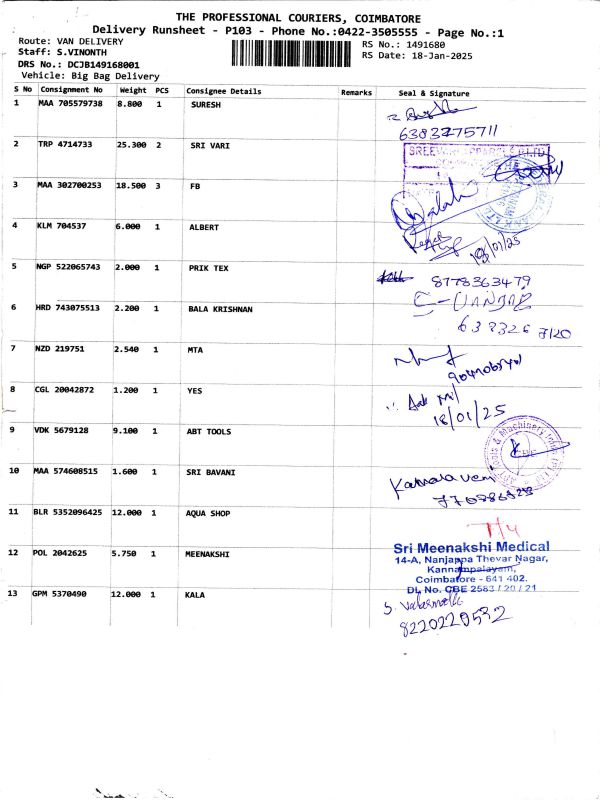 THE PROFESSIONAL COURIERS, COIMBATORE
Delivery Runsheet - P103 - Phone No.:0422-3505555 - Page No.:1
Route: VAN DELIVERY
RS No.: 1491680
Staff: S.VINONTH
RS Date: 18-Jan-2025
DRS No.: DCJB149168001
Vehicle: Big Bag Delivery
S No Consignment No Weight PCS Consignee Details Remarks Seal & Signature
1 MAA 705579738 8.800 1 SURESH
6383775711
2 TRP 4714733 25.300 2 SRI VARI
3 MAA 302700253 18.500 3 FB
4 KLM 704537 6.000 1 ALBERT
18/01/25
5 NGP 522065743 2.000 1 PRIK TEX
8778363479
6 HRD 743075513 2.200 1 BALA KRISHNAN
7 NZD 219751 2.540 1 MTA
8 CGL 20042872 1.200 1 YES
18/01/25
9 VDK 5679128 9.100 1 ABT TOOLS
10 MAA 574608515 1.600 1 SRI BAVANI
11 BLR 5352096425 12.000 1 AQUA SHOP
12 POL 2042625 5.750 1 MEENAKSHI
Sri Meenakshi Medical
14-A, Nanjappa Thevar Nagar,
Kannampalayam,
Coimbatore - 641 402.
DL No. CBE 2583 / 20 / 21
13 GPM 5370490 12.000 1 KALA
8220220532